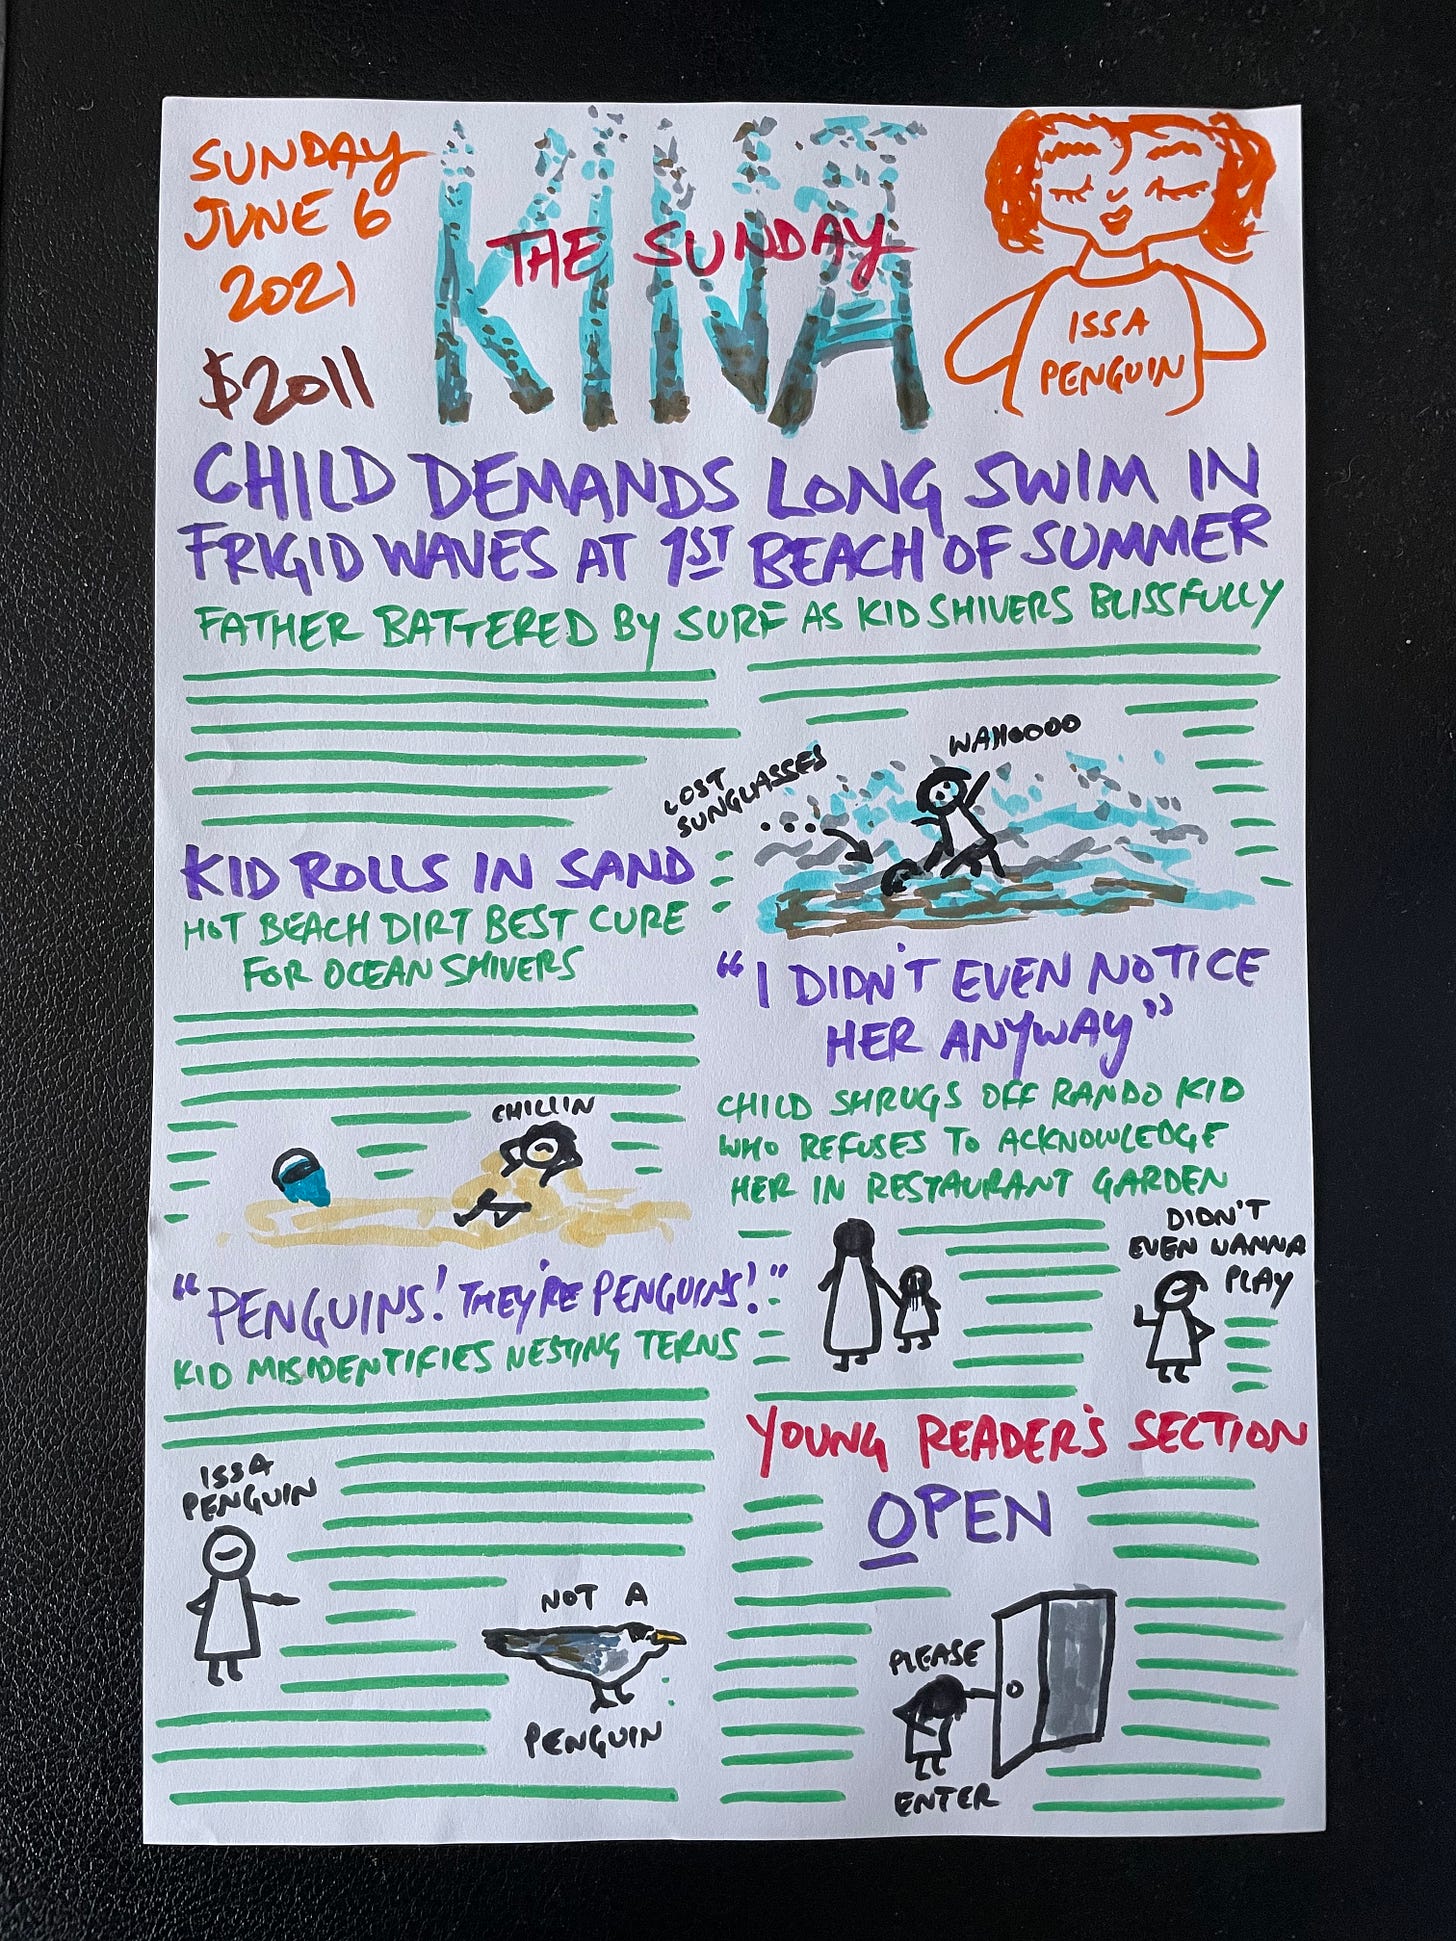 SUNDAY
JUNE 6
2021
$2011
KINA
THE SUNDAY
ISSA
PENGUIN
CHILD DEMANDS LONG SWIM IN
FRIGID WAVES AT 1ST BEACH OF SUMMER
FATHER BATTERED BY SURF AS KID SHIVERS BLISSFULLY
LOST
SUNGLASSES
WAHOOOO
KID ROLLS IN SAND
HOT BEACH DIRT BEST CURE
FOR OCEAN SHIVERS
CHILLIN
"I DIDN'T EVEN NOTICE
HER ANYWAY"
CHILD SHRUGS OFF RANDO KID
WHO REFUSES TO ACKNOWLEDGE
HER IN RESTAURANT GARDEN
DIDN'T
EVEN WANNA
PLAY
"PENGUINS! THEY'RE PENGUINS!"
KID MISIDENTIFIES NESTING TERNS
ISSA
PENGUIN
NOT A
PENGUIN
YOUNG READER'S SECTION
OPEN
PLEASE
ENTER